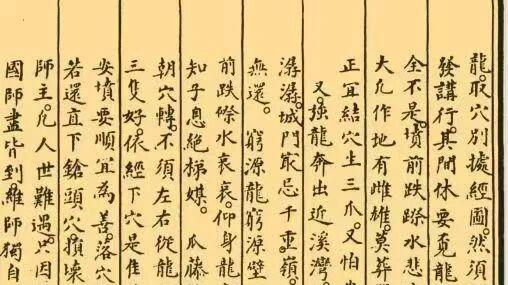 龍。取穴別據經圖。然須
發講行。其間休要覓龍
全不是。墳前跌蹀水悲
大凡作地有雌雄。莫葬
正宜結穴生三爪。又怕
又。強龍奔出近溪灣。
潺潺。城門最忌千重嶺。
無還。窮源龍窮源壁
前跌蹀水哀哀。仰身龍
知子息絕梯媒。瓜藤
朝穴轉。不須左右從龍
三隻好。依經下穴是佳
安墳要順宜為善。落穴
若還直下鎗頭穴。損壞
師主。凡人世難遇。只因
國師盡皆到。羅師獨自